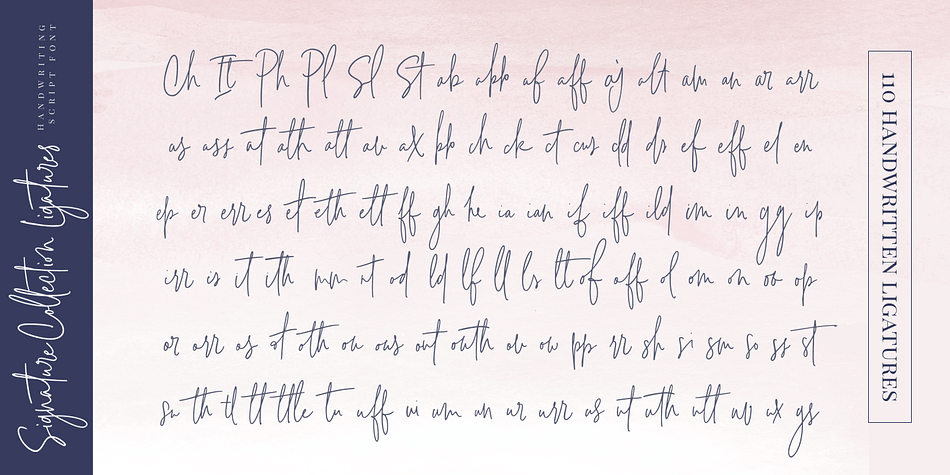 Signature Collection Ligatures
HANDWRITING
SCRIPT FONT
Ch It Ph Pl Sl St ab abb af aff aj alt am an ar arr
as ass at ath att av ax bb ch ck ct cus dd ds ef eff el en
ep er err es et eth ett ff gh he ia ian if iff ild im in gg ip
irr is it ith mm nt od ld lf ll ls lt of off ol om on oo op
or orr os ot oth ou ous out outh ov ow pp rr sh si sm so ss st
su th tl tt ttle tu uff ui um un ur urr us ut uth utt uv ux ys
110 HANDWRITTEN LIGATURES